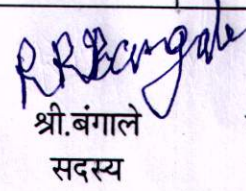 R R Bangale
श्री.बंगाले
सदस्य